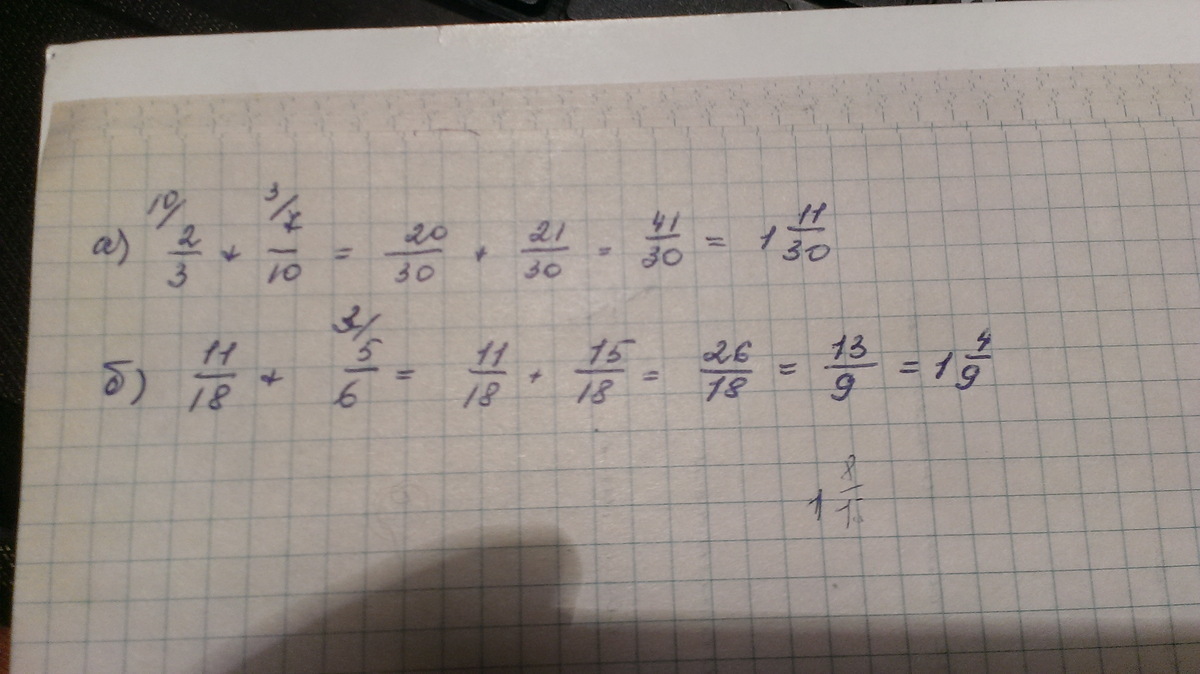 а) 10/ 2/3 + 3/ 7/10 = 20/30 + 21/30 = 41/30 = 1 11/30
б) 11/18 + 3/ 5/6 = 11/18 + 15/18 = 26/18 = 13/9 = 1 4/9
1 8/